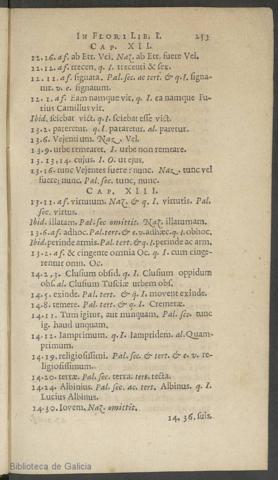 IN FLORI LIB. I. 253
CAP. XII.
12.16. af. ab Etr. Vel. Naz. ab Etr. fuere Vel.
12.12. af. trecen, q. I. trecenti & sex.
12.11. af. signata. Pal. sec. ac tert. & q. I. signa-
tur. v. e. signatum.
12.1. af. Eam namque vit. q. I. ea namque Fu-
rius Camillus vit.
Ibid. sciebat vict. q. I. sciebat esse vict.
13.2. pareretur. q. I. pararetur. al. paretur.
13.6. Vejentium. Naz. Vel.
13.9. urbe remearet. I. urbe non remeare.
13. 13,14. cujus. I. O. ut ejus.
13.16. tunc Vejentes fuere: nunc. Naz. tunc vel
fuere; nunc. Pal. sec. tunc, nunc.
CAP. XIII.
13.11. af. virtutum. Naz. & q. I. virtutis. Pal.
sec. virtus.
Ibid. illatam. Pal. sec. omittit. Naz. illaturnam.
13.6. af. adhoc. Pal. tert. & e.v. adhæc. q. I. obhoc.
Ibid. perinde armis. Pal. tert. & q. I. perinde ac arm.
13.2. af. & cingente omnia Oc. q. I. cum cinge-
rentur omn. Oc.
14.2,3. Clusium obsid. q. I. Clusium oppidum
obs. al. Clusium Tusciæ urbem obs.
14.5. exinde. Pal. tert. & q. I. movent exinde.
14.8. temere. Pal. tert. & q. I. Cremeræ.
14.11. Tum igitur, aut nunquam, Pal. sec. tunc
ig. haud unquam.
14.12. Iamprimum. q. I. Iampridem. al. Quam-
primum.
14.19. religiosissimi. Pal. sec. & tert. & e. v. re-
ligiosissimum.
14.20. terræ. Pal. sec. terra. tert. tecta.
14.24. Albinius. Pal. sec. ac tert. Albinus. q. I.
Lucius Albinus.
14.30. Iovem, Naz. omittit.
14. 36. suis.
Biblioteca de Galicia